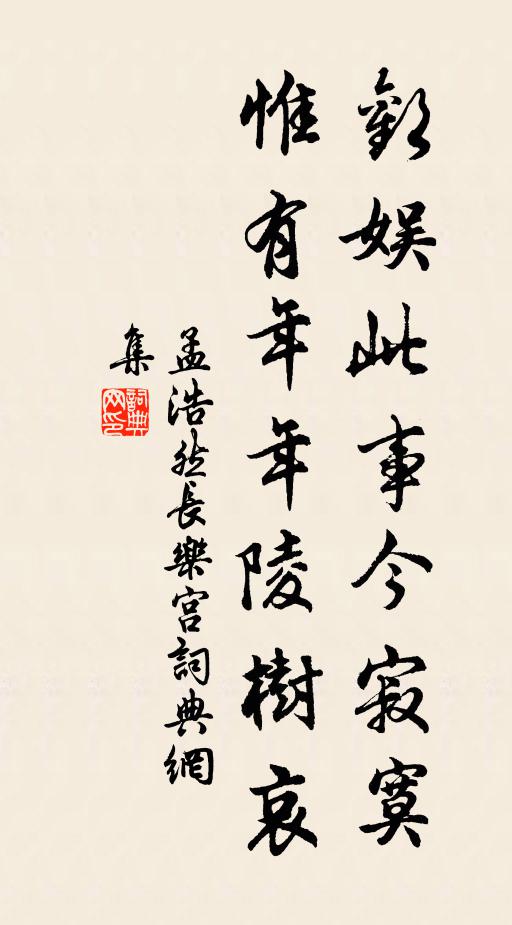 歡娛此事今寂寞
惟有年年陵樹哀
孟浩然長樂宮詞典網
集
詞典
网印